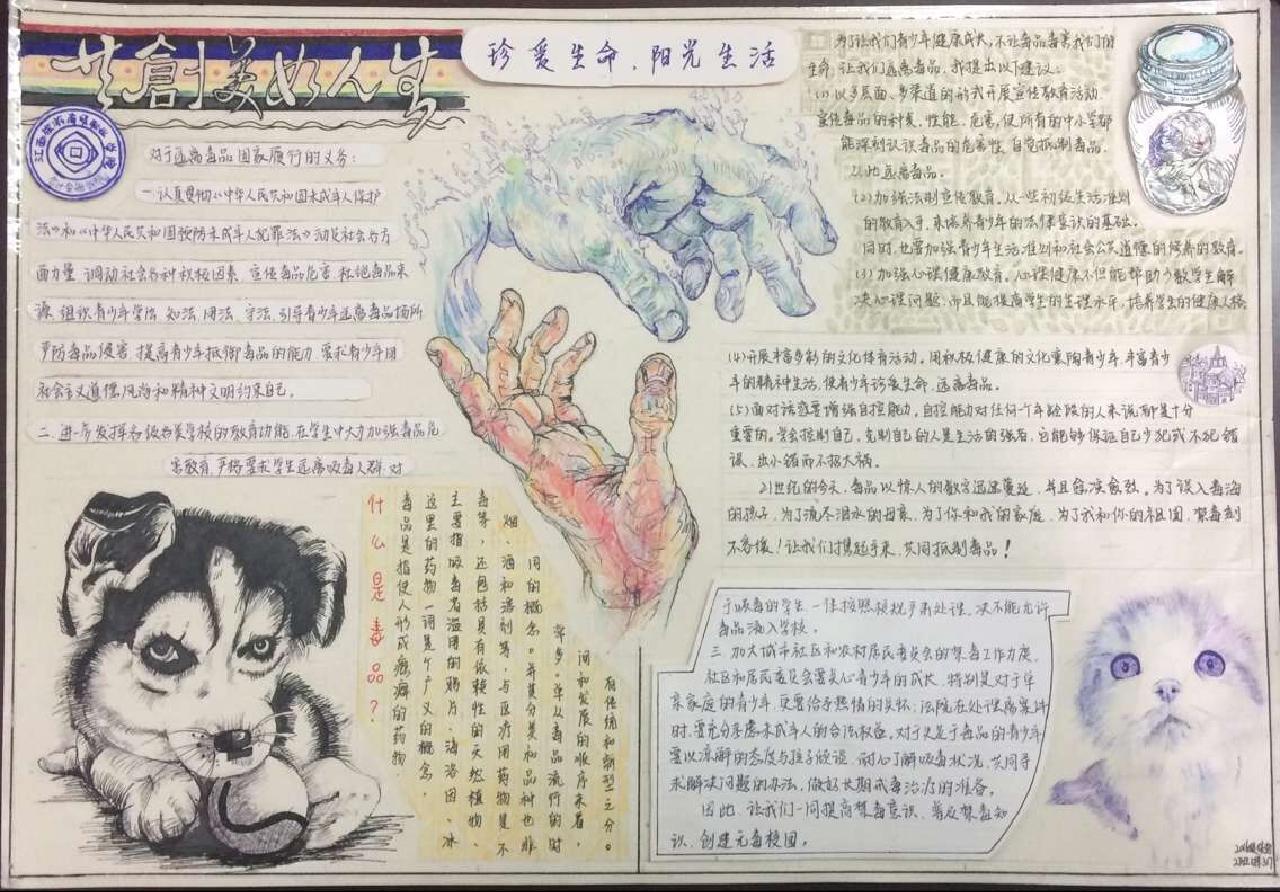 共創美好人生
珍爱生命、阳光生活
对于远离毒品国家履行的义务：
一.认真贯彻《中华人民共和国未成年人保护
法》和《中华人民共和国预防未成年人犯罪法》动员社会各方
面力量,调动社会各种积极因素,宣传毒品危害,杜绝毒品来
源,组织青少年学法、知法、用法、守法,引导青少年远离毒品场所
严防毒品侵害,提高青少年抵御毒品的能力,要求青少年用
社会主义道德风尚和精神文明约束自己。
二.进一步发挥各级各类学校的教育功能,在学生中大力加强毒品危
害教育,严格要求学生远离吸毒人群,对
于吸毒的学生,一律按照校规予以处理,决不能允许
毒品流入学校。
三.加大城市社区和农村居民委员会的禁毒工作力度。
社区和居民委员会要关心青少年的成长,特别是对于单
亲家庭的青少年,更要给予热情的关怀;法院在处理离婚案件
时,要充分考虑未成年人的合法权益。对于已是于毒品的青少年
要以谅解的态度与孩子做谈,耐心了解吸毒状况,共同寻
求解决问题的办法,做好长期戒毒治疗的准备。
因此,让我们一同提高禁毒意识,普及禁毒知
识,创建无毒校园。
什么是毒品？
毒品是指使人形成瘾癖的药物,
这里的药物一词是个广义的概念,
主要指吸毒者滥用的鸦片、海洛因、冰
毒等,还包括具有依赖性的天然植物、
烟、酒和溶剂等,与医疗用药物是不
同的概念。并其分类和品种也非
常多,单从毒品流行的时
间和发展的顺序来看,
有传统和新型之分。
为了让我们青少年健康成长,不让毒品毒害我们的
生命,让我们远离毒品,我提出以下建议：
(1)以多层面、多渠道的形式开展宣传教育活动
宣传毒品的种类、性能、危害,使所有的中小学都
能深刻认识毒品的危害性,自觉抵制毒品.
从此远离毒品。
(2)加强法制宣传教育。从一些初级生活准则
的教育入手,来培养青少年的法律意识的基础。
同时,也要加强青少年生活准则和社会公共道德的修养的教育。
(3)加强心理健康教育。心理健康不但能帮助少数学生解
决心理问题,而且能提高学生的生理水平,培养学生的健康人格
(4)开展丰富多彩的文化体育活动。用积极健康的文化熏陶青少年,丰富青少
年的精神生活,使青少年珍爱生命,远离毒品。
(5)面对诱惑要增强自控能力。自控能力对任何一个年龄段的人来说都是十分
重要的。学会控制自己,克制自己的人是生活的强者,它能够保证自己少犯或不犯错
误,出小错而不招大祸。
21世纪的今天,毒品以惊人的数字迅速蔓延,并且愈演愈烈。为了误入毒海
的孩子,为了流尽泪水的母亲,为了你和我的家庭,为了我和你的祖国,禁毒刻
不容缓！让我们携起手来,共同抵制毒品！